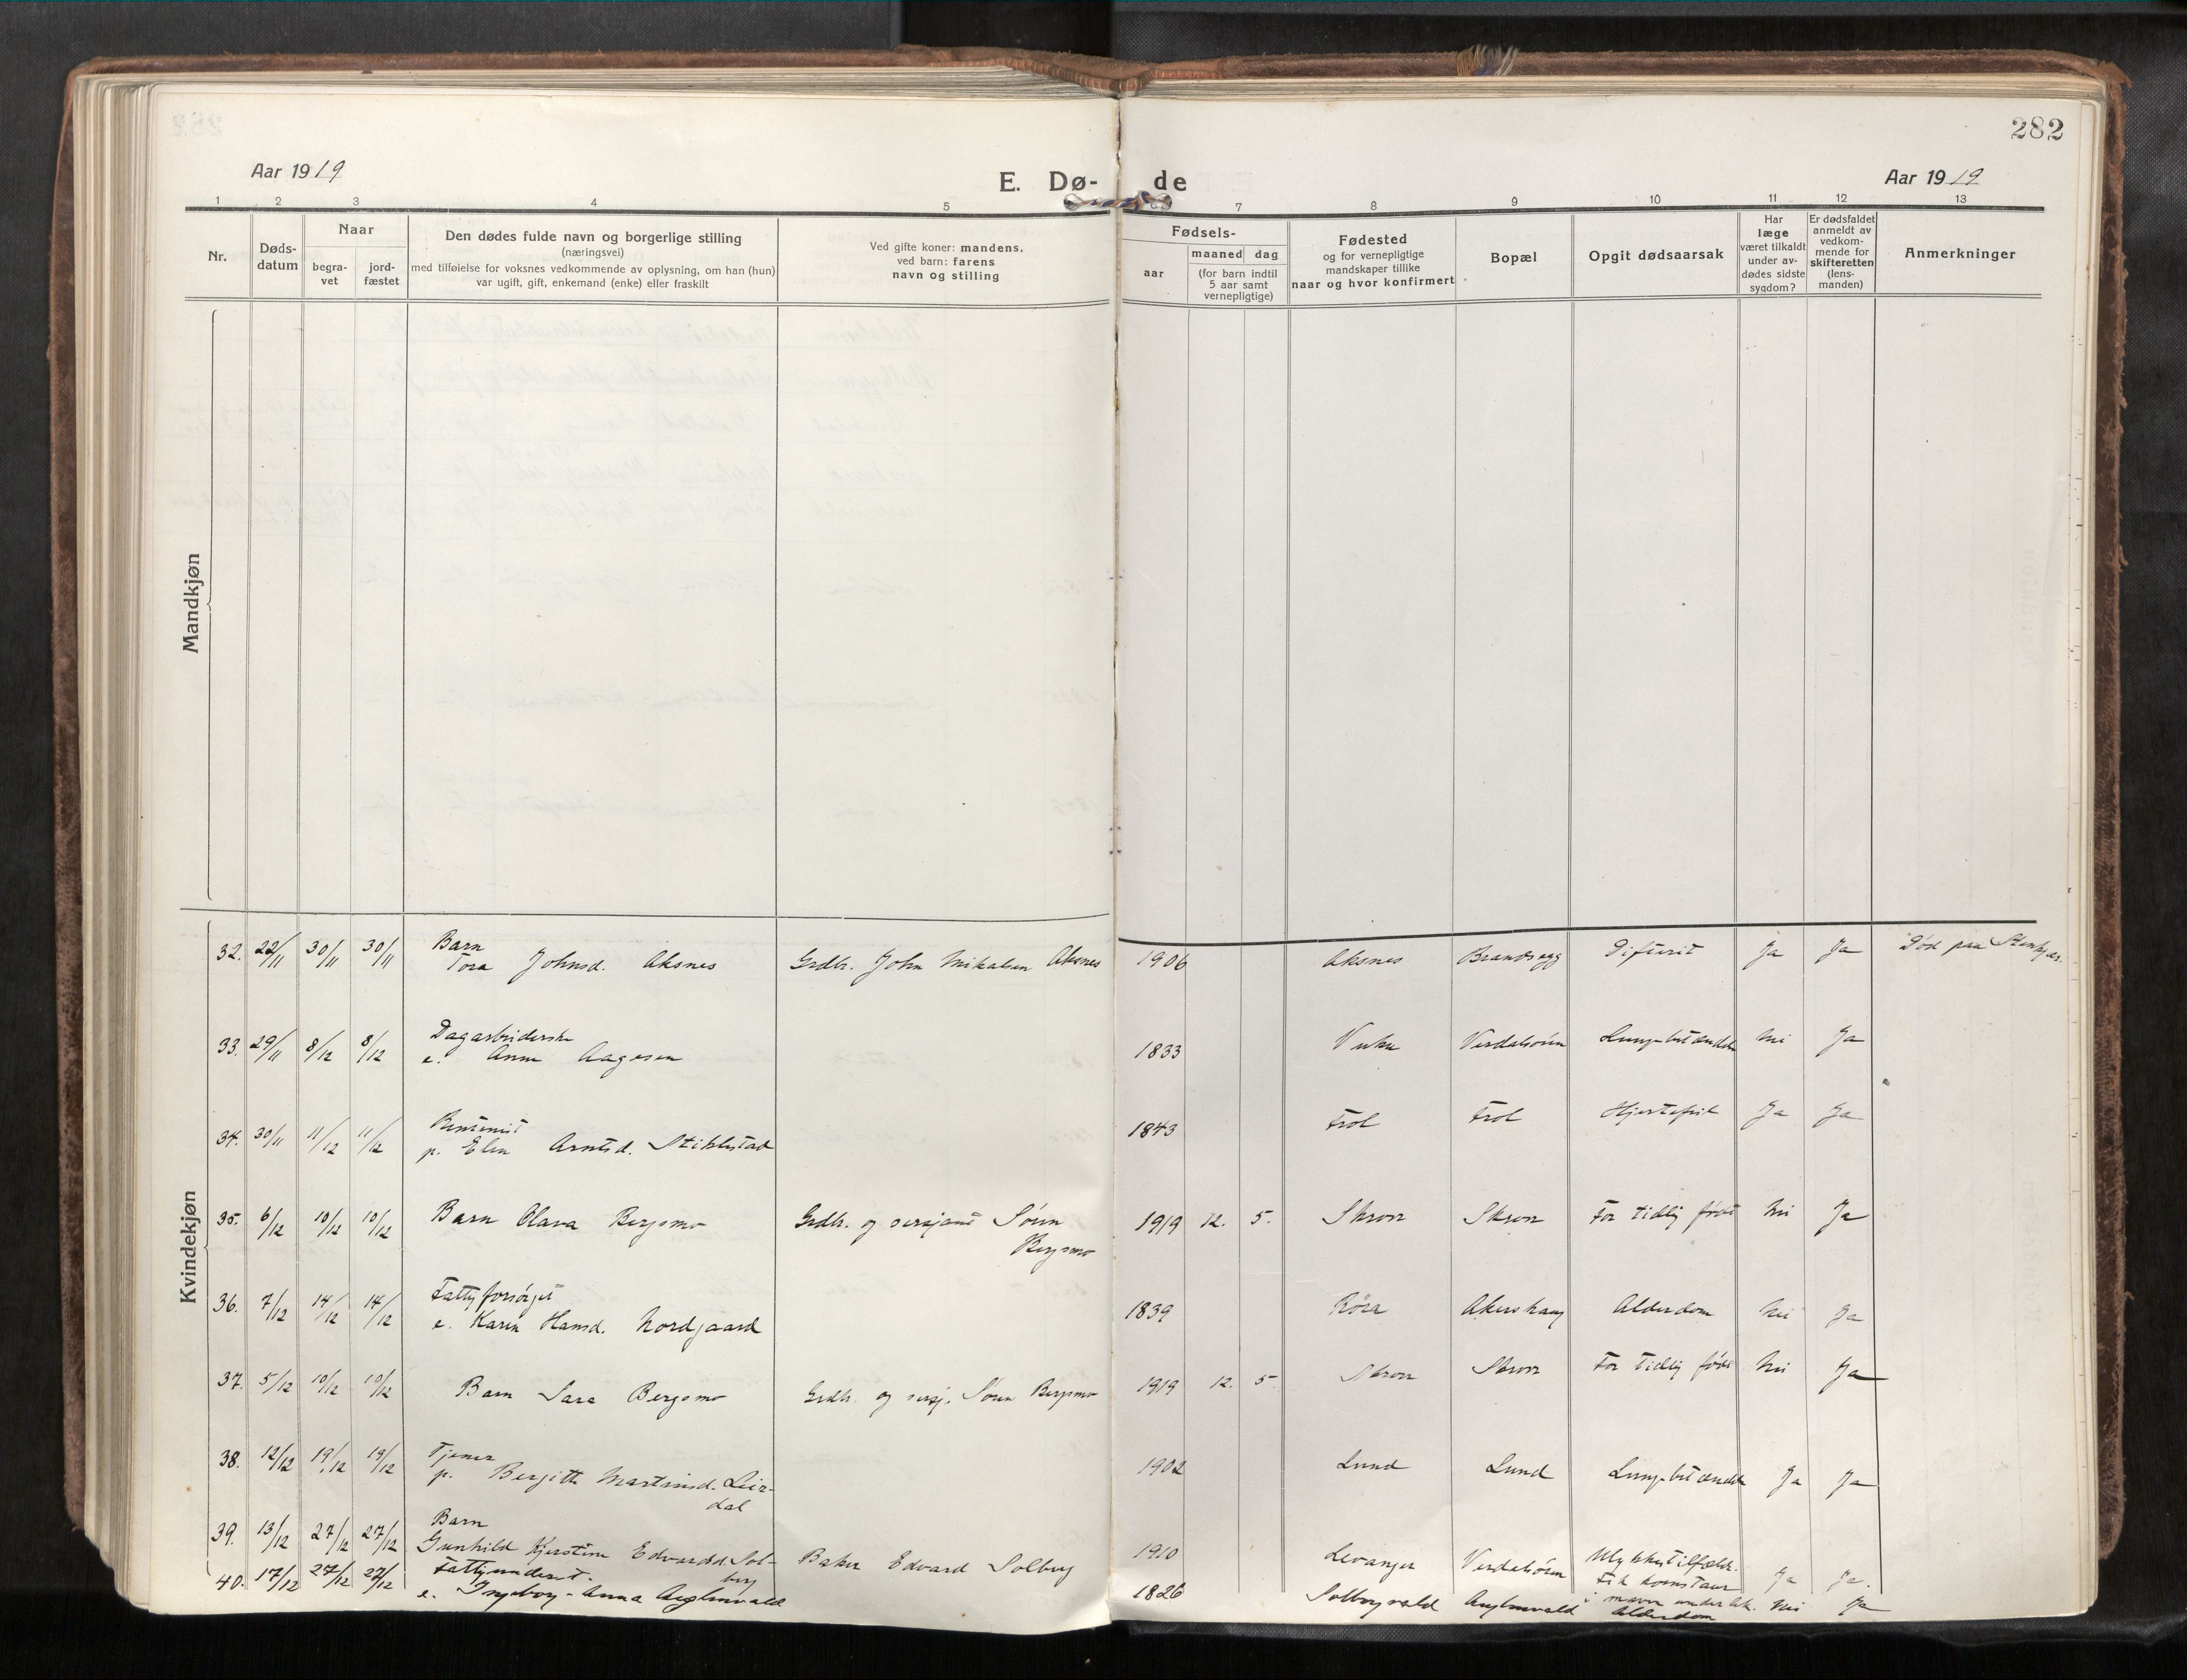 282
Aar 1919
E. Dø- de
Aar 1919
1 2 3 4 5 6 7 8 9 10 11 12 13
Nr.
Døds-
datum
Naar
begra-
vet
jord-
fæstet
Den dødes fulde navn og borgerlige stilling
(næringsvei)
med tilføielse for voksnes vedkommende av oplysning, om han (hun)
var ugift, gift, enkemand (enke) eller fraskilt
Ved gifte koner: mandens,
ved barn: farens
navn og stilling
Fødsels-
aar
maaned dag
(for barn indtil
5 aar samt
vernepligtige)
Fødested
og for vernepligtige
mandskaper tillike
naar og hvor konfirmert
Bopæl
Opgit dødsaarsak
Har
læge
været tilkaldt
under av-
dødes sidste
sygdom?
Er dødsfaldet
anmeldt av
vedkom-
mende for
skifteretten
(lens-
manden)
Anmerkninger
Mandkjøn
Kvindekjøn
32. 22/11 30/11 30/11 Barn
Tora Johnsd. Aksnes Grdb. John Mikalsen Aksnes 1906 Aksnes Brandsegg Difterit Ja Ja Død paa Stenkjær.
33. 29/11 8/12 8/12 Dagarbeiderske
e. Anne Aagesen 1833 Vuku Verdalsøren Lungebetændelse Nei Ja
34. 30/11 11/12 11/12
p. Elen Arntsd. Stiklestad 1843 Frol Frol Hjertefeil Ja Ja
35. 6/12 10/12 10/12 Barn Olava Bergsmo Grdb. og sersjant Søren
Bergsmo 1919 12. 5. Skrove Skrove For tidlig født Nei Ja
36. 7/12 14/12 14/12 Fattigforsørget
e. Karen Hansd. Nordgaard 1839 Röra Akershaug Alderdom Nei Ja
37. 5/12 10/12 10/12 Barn Sara Bergsmo Grdb. og sersj. Søren Bergsmo 1919 12. 5. Skrove Skrove For tidlig født Nei Ja
38. 12/12 19/12 19/12 Tjener
p. Bergitte Martinsd. Leir-
dal 1902 Lund Lund Lungebetændelse Ja Ja
39. 13/12 27/12 27/12 Barn
Gunhild Kjerstine Edvardsd. Sol-
berg Baker Edvard Solberg 1910 Levanger Verdalsøren Ulykkestilfælde.
Fik kornstaur
i maven under lek. Ja Ja.
40. 17/12 27/12 27/12 Fattigunderst.
e. Ingeborg-Anna Auglenvald 1826 Solbergvald Auglenvald Alderdom Nei Ja